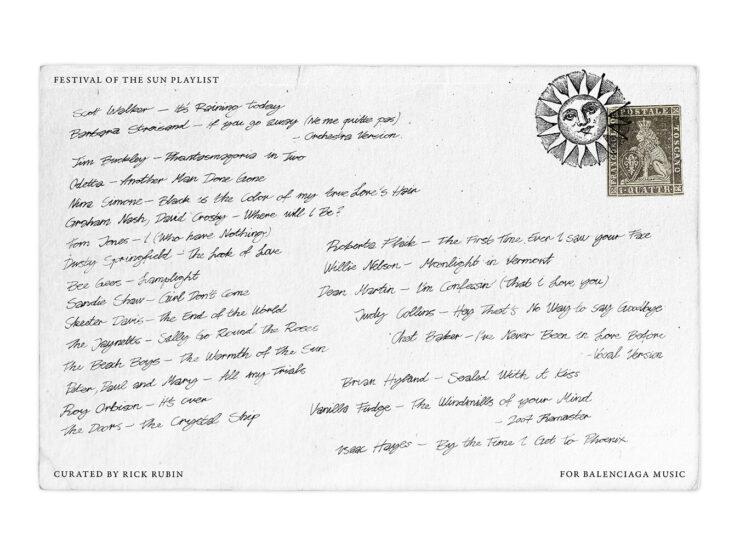 FESTIVAL OF THE SUN PLAYLIST
Scott Walker – It's Raining Today
Barbara Streisand – If you go away (Ne me quitte pas)
– Orchestra Version.
Tim Buckley – Phantasmagoria in Two
Odetta – Another Man Done Gone
Nina Simone – Black is the Color of my true Love's Hair
Graham Nash, David Crosby – Where will I Be?
Tom Jones – I (Who have Nothing)
Dusty Springfield – The Look of Love
Bee Gees – Lamplight
Sandie Shaw – Girl Don't Come
Skeeter Davis – The End of the World
The Jaynetts – Sally Go Round the Roses
The Beach Boys – The Warmth of the Sun
Peter, Paul and Mary – All my Trials
Roy Orbison – It's over
The Doors – The Crystal Ship
Roberta Flack – The First Time Ever I saw your Face
Willie Nelson – Moonlight in Vermont
Dean Martin – I'm Confessin' (That I Love you)
Judy Collins – Hey That's No Way to say Goodbye
Chet Baker – I've Never Been in Love Before
– Vocal Version
Brian Hyland – Sealed With A Kiss
Vanilla Fudge – The Windmills of your Mind
– 2007 Remaster
Isaac Hayes – By the Time I Get to Phoenix
POSTALE
TOSCANO
QUATTR
CURATED BY RICK RUBIN
FOR BALENCIAGA MUSIC